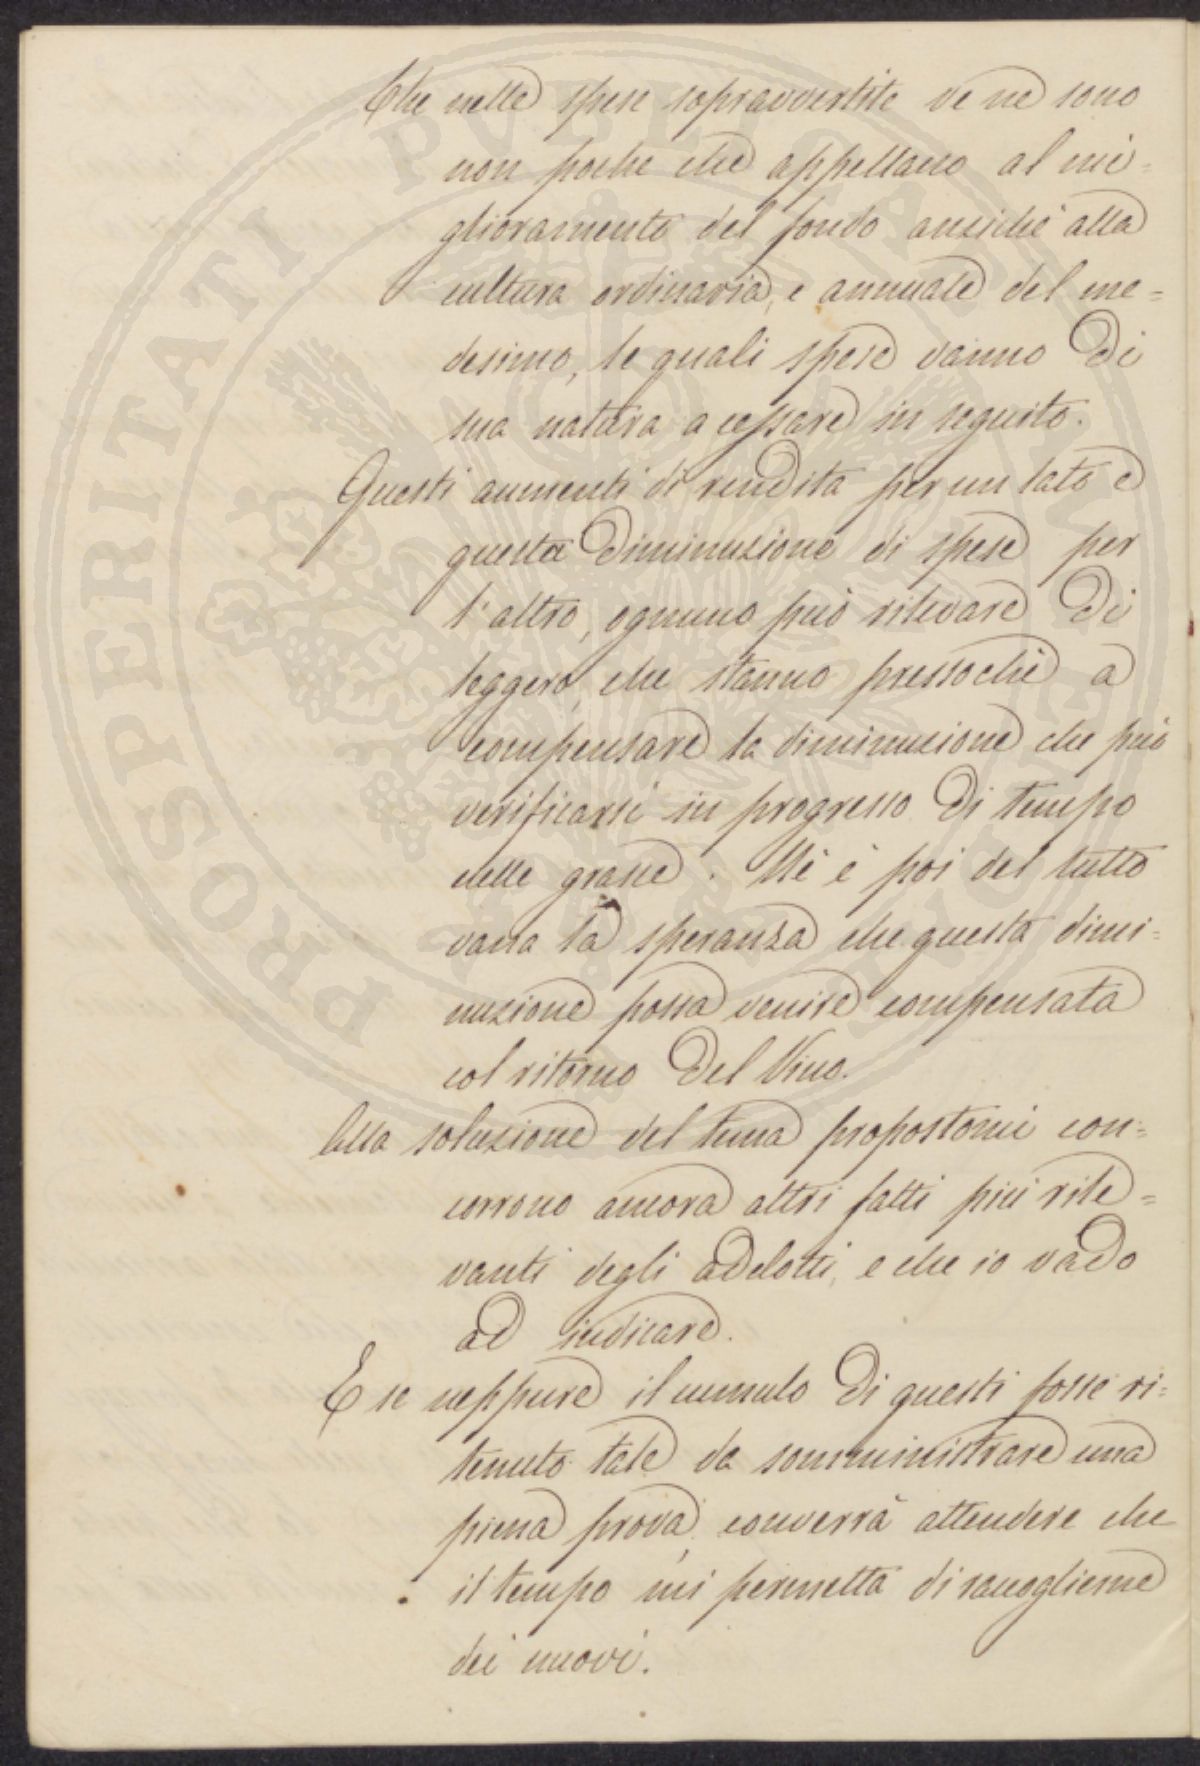 Che nelle spese sopravvertite ve ne sono
non poche che appellano al mi-
glioramento del fondo anziché alla
cultura ordinaria, e annuale del me=
desimo, le quali spese vanno di
sua natura a cessare in seguito.
Questi aumenti di rendita per un lato e
questa diminuzione di spese per
l'altro, ognuno può rilevare di
leggero, che stanno pressoché a
compensare la diminuzione che può
verificarsi in progresso di tempo
nelle grasce. Nè è poi del tutto
vana la speranza che questa dimi-
nuzione possa venire compensata
col ritorno del Vino.
Alla soluzione del tema propostomi con=
corrono ancora altri fatti più rile=
vanti degli adotti, e che io vado
ad indicare.
E se neppure il cumulo di questi fosse ri=
tenuto tale da somministrare una
piena prova, converrà attendere che
il tempo mi permetta di raccoglierne
dei nuovi.
PROSPERITATI PVBLICAE